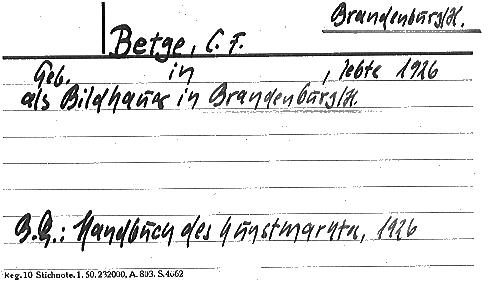 Brandenburg/H.
Betge, C. F.
Geb. in , lebte 1926
als Bildhauer in Brandenburg/H.
B.G.: Handbuch des Kunstmarkte, 1926
Reg. 10 Stichnote. 1. 50. 232000, A. 803. S. 4662